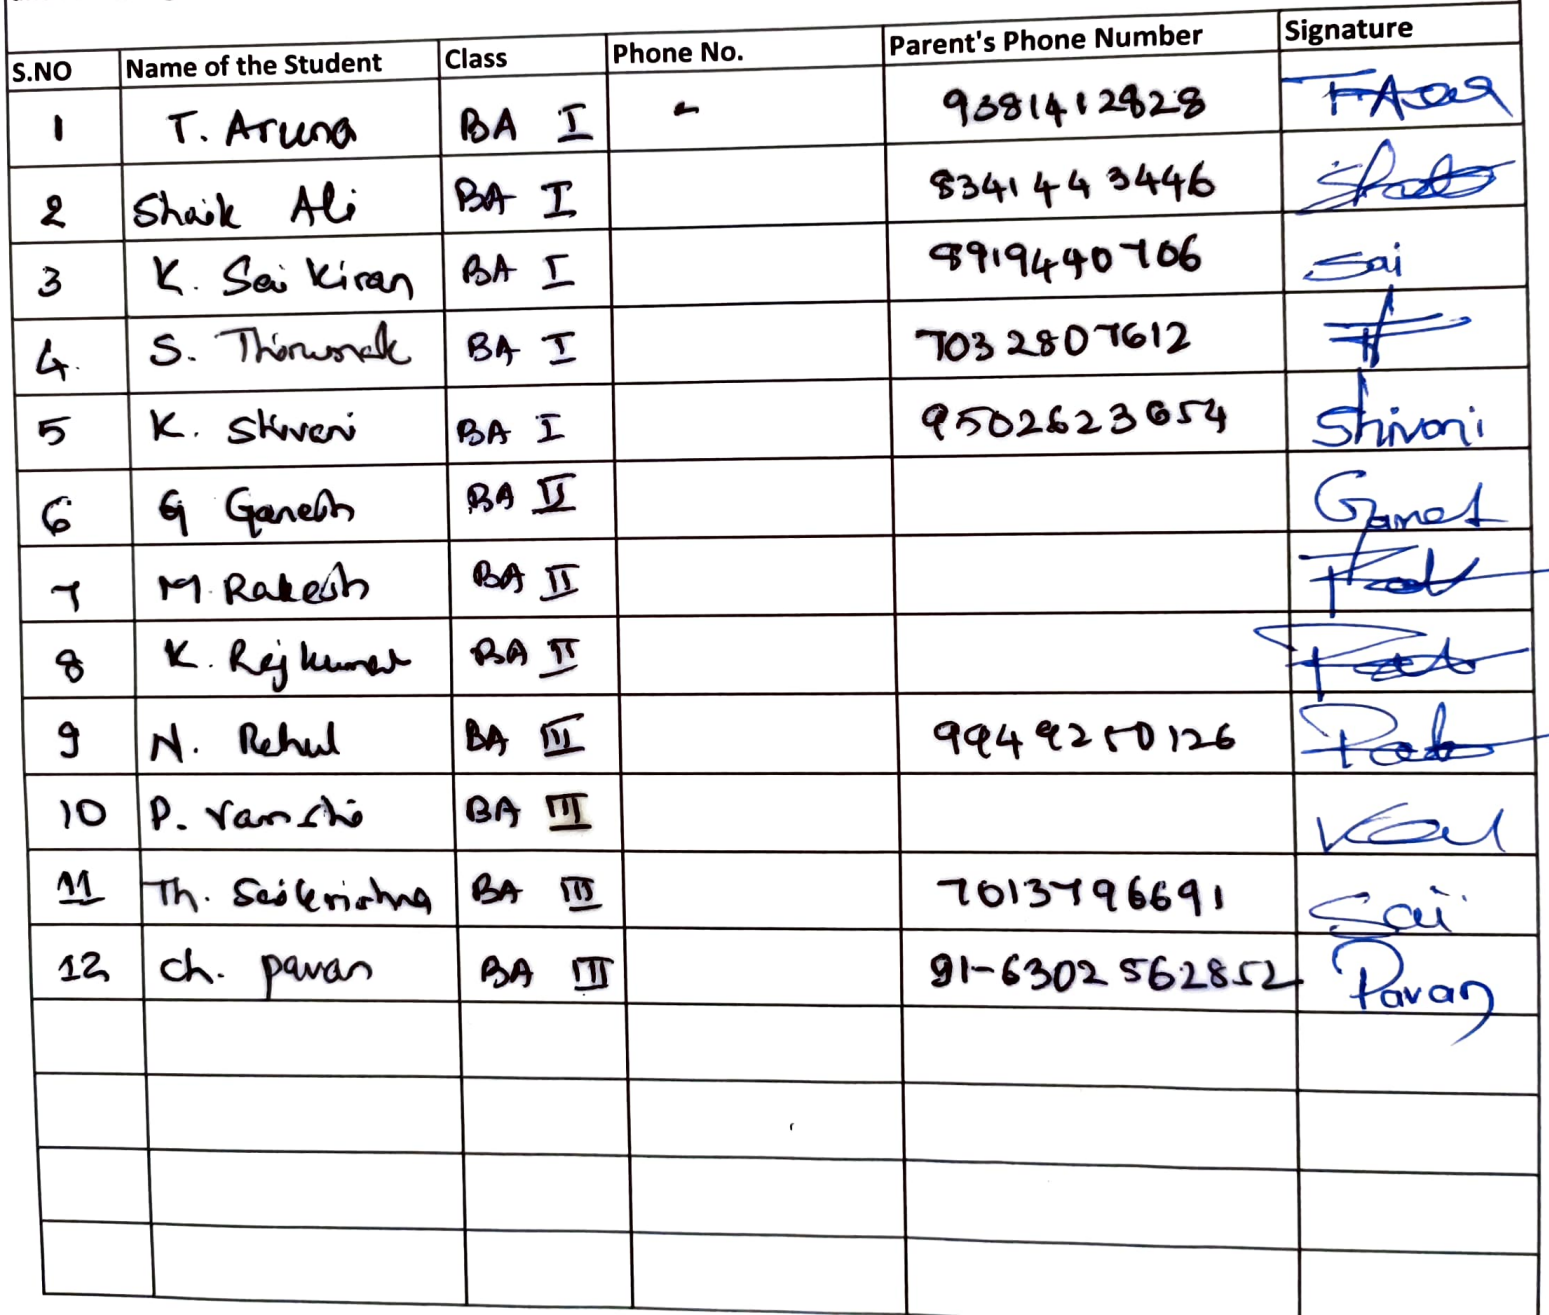 S.NO Name of the Student Class Phone No. Parent's Phone Number Signature
1 T. Aruna BA I - 9381412828
2 Shaik Ali BA I 8341443446
3 K. Sai Kiran BA I 8919440706 Sai
4. S. BA I 7032807612
5 K. Shivani BA I 9502623654 Shivani
6 G Ganesh BA II Ganesh
7 M. Rakesh BA II
8 K. Rajkumar BA II
9 N. Rahul BA III 9949250126
10 P. Vamshi BA III
11 Th. Saikrishna BA III 7013796691 Sai
12 Ch. pavan BA III 91-6302562852 Pavan